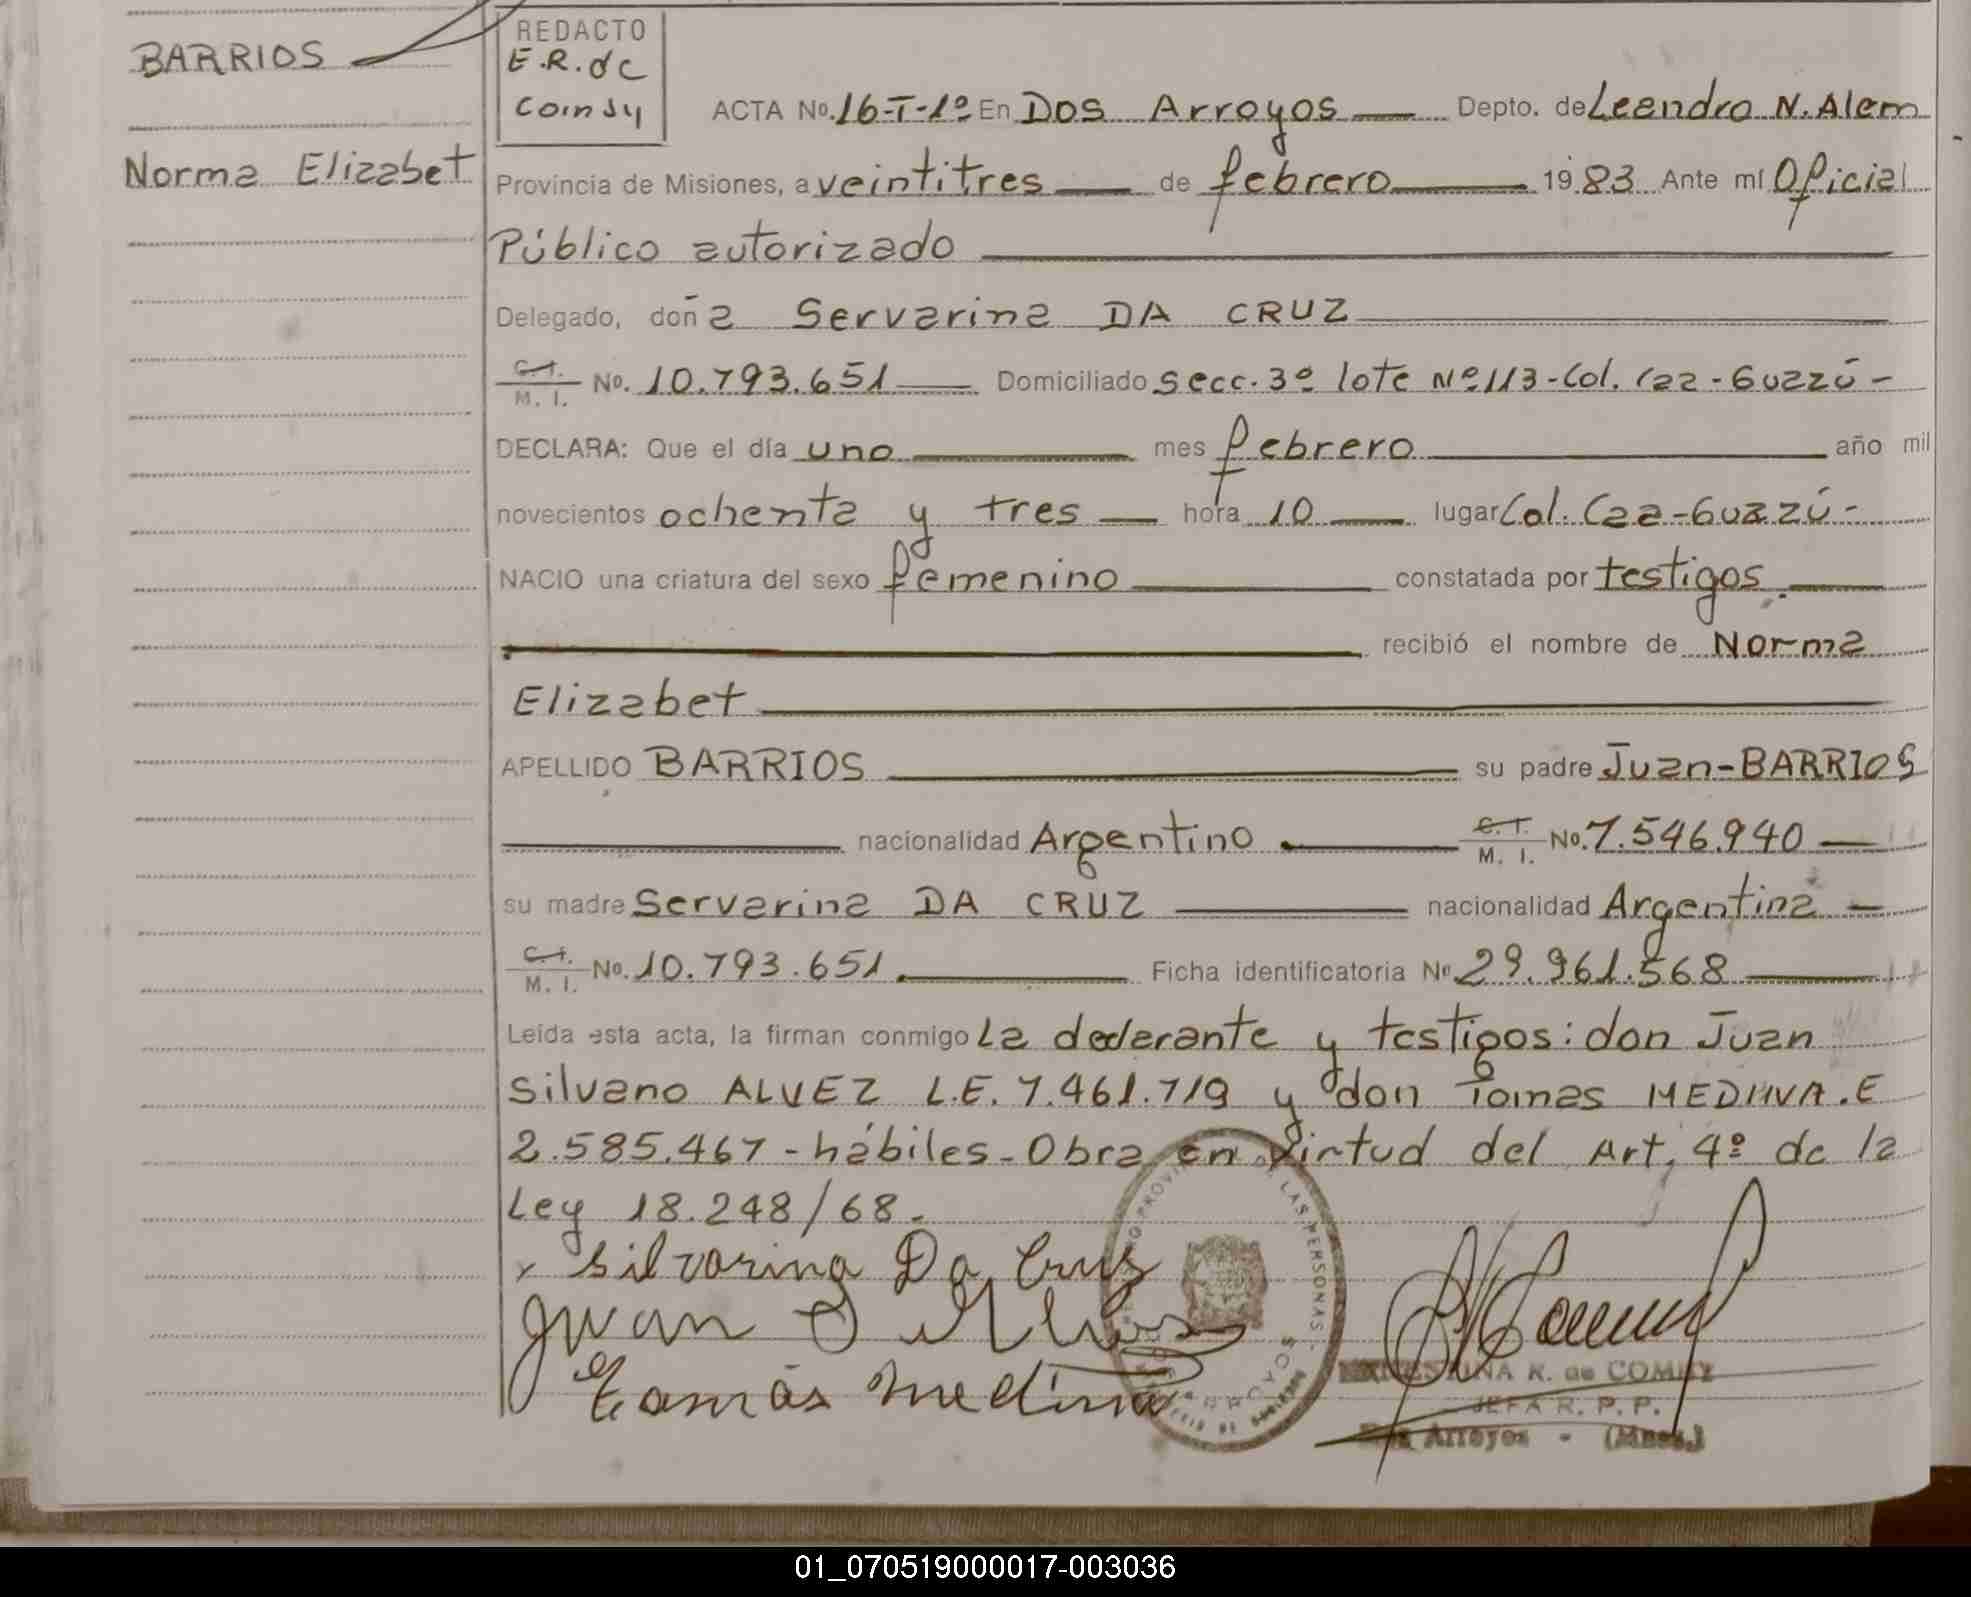 BARRIOS
Norma Elizabet
REDACTO
E.R. de
ACTA No. 16-T-1º En Dos Arroyos Depto. de Leandro N. Alem
Provincia de Misiones, a veintitres de febrero 1983 Ante mí Oficial
Público autorizado
Delegado, doña Servarina DA CRUZ
C.I. M. I. No. 10.793.651 Domiciliado secc. 3º lote Nº 113-Col. Caa-Guazzú-
DECLARA: Que el día uno mes febrero año mil
novecientos ochenta y tres hora 10 lugar Col. Caa-Guazzú-
NACIO una criatura del sexo femenino constatada por testigos
recibió el nombre de Norma
Elizabet
APELLIDO BARRIOS su padre Juan-BARRIOS
nacionalidad Argentino C.I. M. I. No. 7.546.940
su madre Servarina DA CRUZ nacionalidad Argentina
C.I. M. I. No. 10.793.651 Ficha identificatoria Nº 29.961.568
Leída esta acta, la firman conmigo La declarante y testigos: don Juan
Silvano ALVEZ L.E. 7.461.719 y don Tomas MEDINA.E
2.585.467-hábiles-Obra en virtud del Art. 4º de la
Ley 18.248/68.
x Silvarina Da Cruz
Juan S
Tomás Medina
LAS PERSONAS
ARROYOS
R. de
JEFA R. P. P.
Dos Arroyos - (Mnes.)
01_070519000017-003036